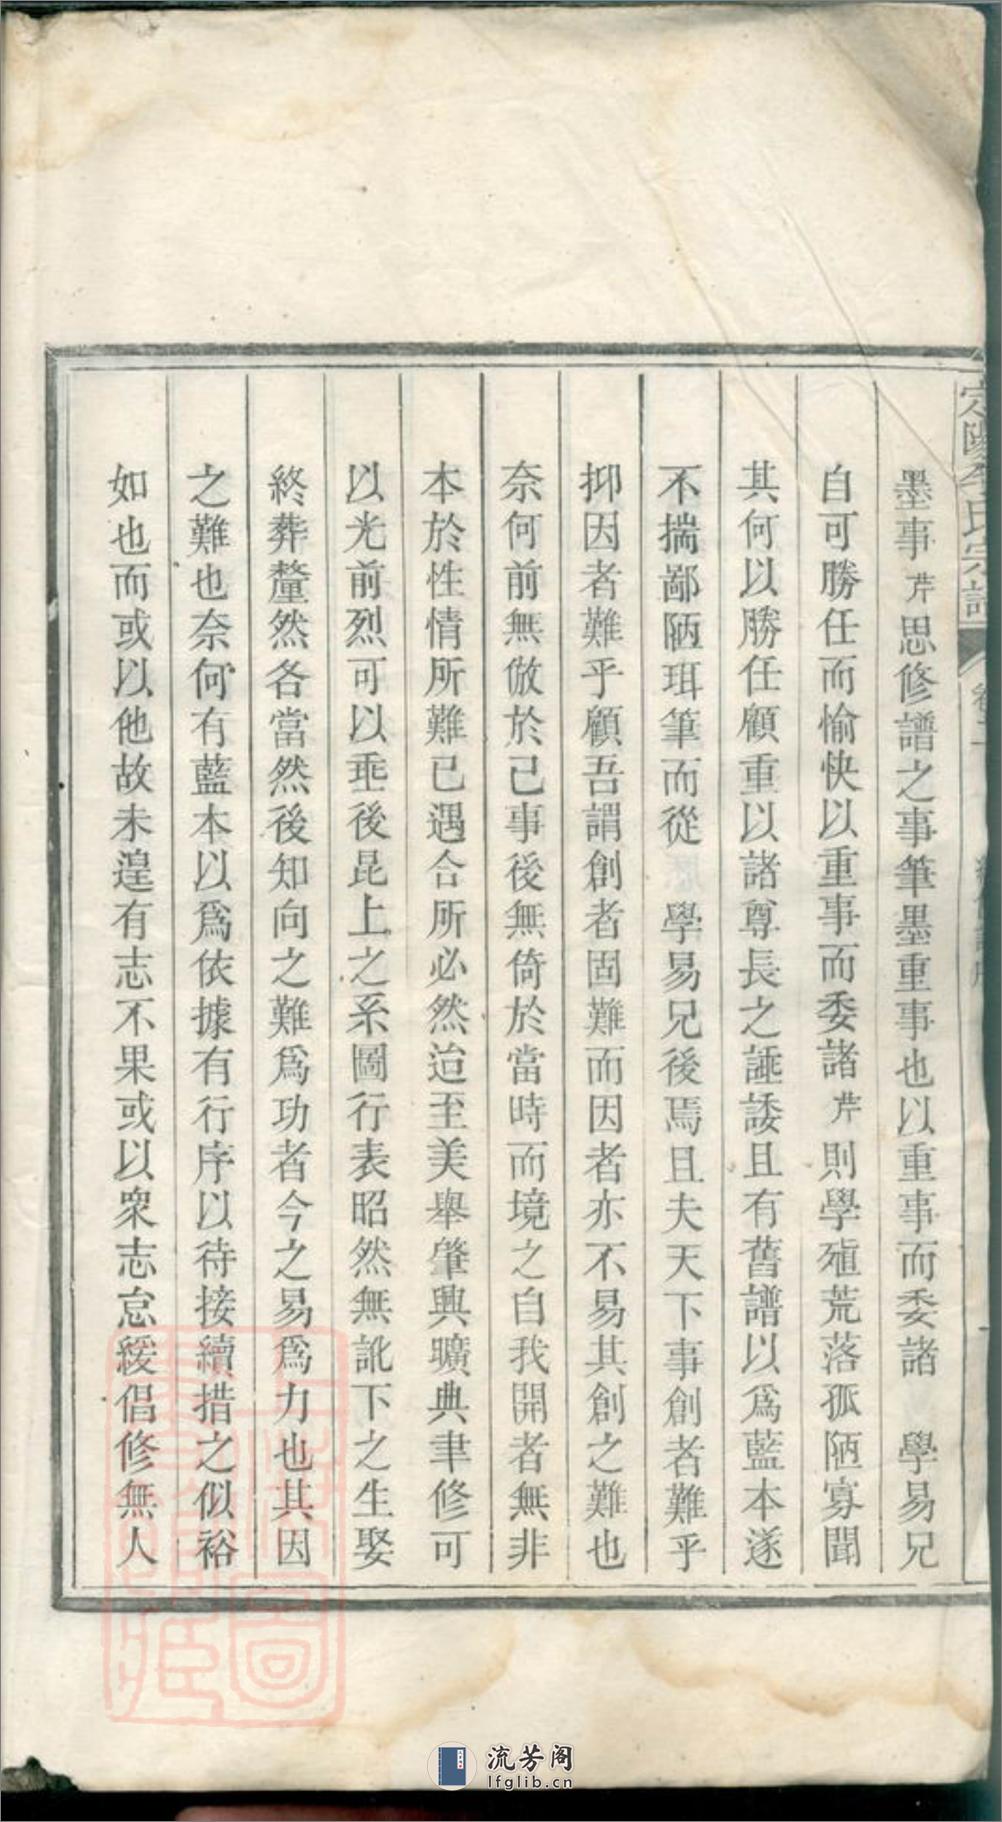 墨事芹思修譜之事筆墨重事也以重事而委諸　學易兄
自可勝任而愉快以重事而委諸芹則學殖荒落孤陋寡聞
其何以勝任顧重以諸尊長之諈諉且有舊譜以爲藍本遂
不揣鄙陋珥筆而從　學易兄後焉且夫天下事創者難乎
抑因者難乎顧吾謂創者固難而因者亦不易其創之難也
奈何前無倣於己事後無倚於當時而境之自我開者無非
本於性情所難已遇合所必然迨至美舉肇興曠典聿修可
以光前烈可以垂後昆上之系圖行表昭然無訛下之生娶
終葬釐然各當然後知向之難爲功者今之易爲力也其因
之難也奈何有藍本以爲依據有行序以待接續措之似裕
如也而或以他故未遑有志不果或以衆志怠緩倡修無人
氏宗譜
流芳阁
lfglib.cn